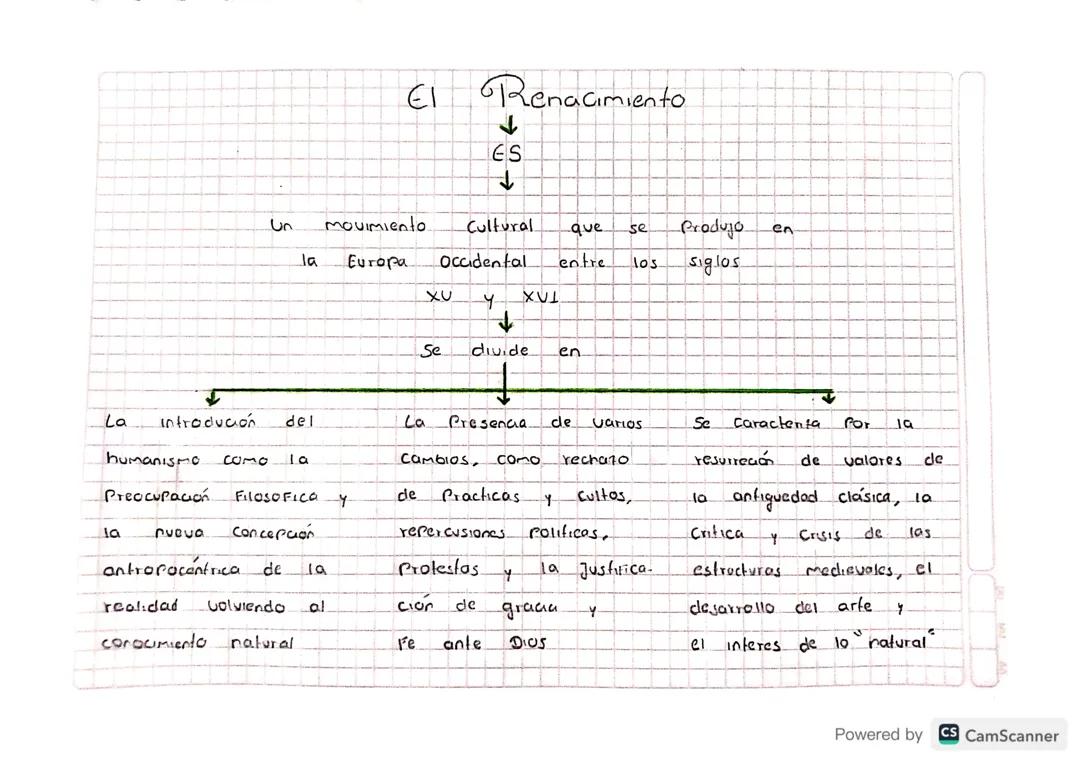 El Renacimiento
ES
Un movimiento cultural que se Produjo en
la Europa Occidental entre los siglos
XV y XVI
Se divide en
La introdución del
humanismo como la
Preocupación Filosofica y
la nueva concepción
antropocéntrica de la
realidad volviendo al
conocimiento natural
La Presencia de varios
Cambios, como rechazo
de Practicas y cultos,
repercusiones politicas,
Protestas y la Justifica-
ción de gracia y
Fe ante Dios
Se caracteriza Por la
resurreción de valores de
la antiguedad clásica, la
Critica y Crisis de las
estructuras medievales, el
desarrollo del arte y
el interes de lo "natural"
Powered by CS CamScanner